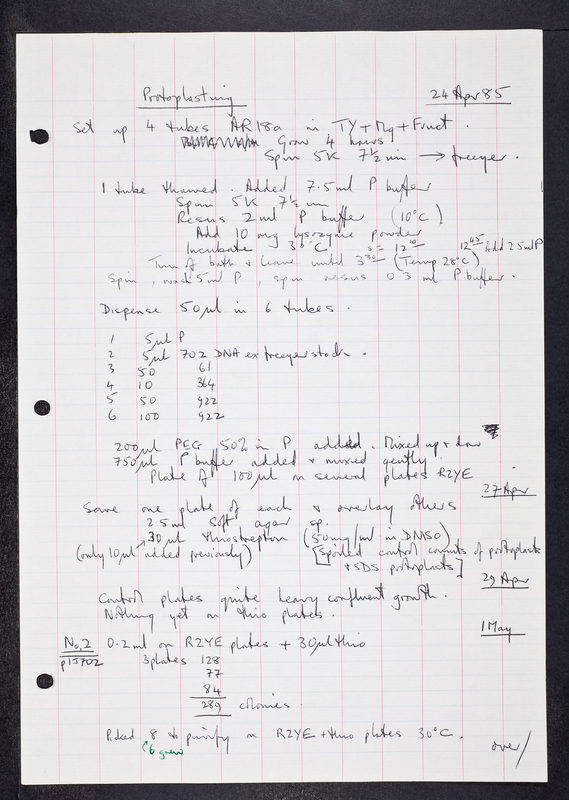 Protoplasting 24 Apr 85
Set up 4 tubes AR18a in TY + Mg + Fruct.
Grow 4 hours
Spin 5K 7½ min → freezer.
1 tube thawed. Added 7.5 ml P buffer
Spin 5K 7½ min
Resus 2 ml P buffer (10°C)
Add 10 mg lysozyme powder
Incubate 30°C s = 12 10 12 45 Add 2.5 ml P
Turn off bath & leave until 3 30 (Temp 28°C)
Spin, wash 5 ml P, spin resus 0.3 ml P buffer.
Dispense 50 µl in 6 tubes.
1 5 µl P
2 5 µl 702 DNA ex freezer stock.
3 50 61
4 10 364
5 50 922
6 100 922
200 µl PEG 50% in P added. Mixed up & down
750 µl P buffer added & mixed gently
Plate of 100 µl on several plates R2YE
27 Apr
Save one plate of each & overlay others
2.5 ml soft agar sp.
→ 30 µl thiostrepton (50 mg/ml in DMSO)
(only 10 µl added previously) [Spoiled control counts of protoplasts
& SDS protoplasts]
29 Apr
Control plates quite heavy confluent growth.
Nothing yet on thio plates.
1 May
No. 2 0.2 ml on R2YE plates + 30 µl thio
pIJ702 3 plates 128
77
84
289 colonies.
Picked 8 to purify on R2YE + thio plates 30°C.
(6 grew
over/